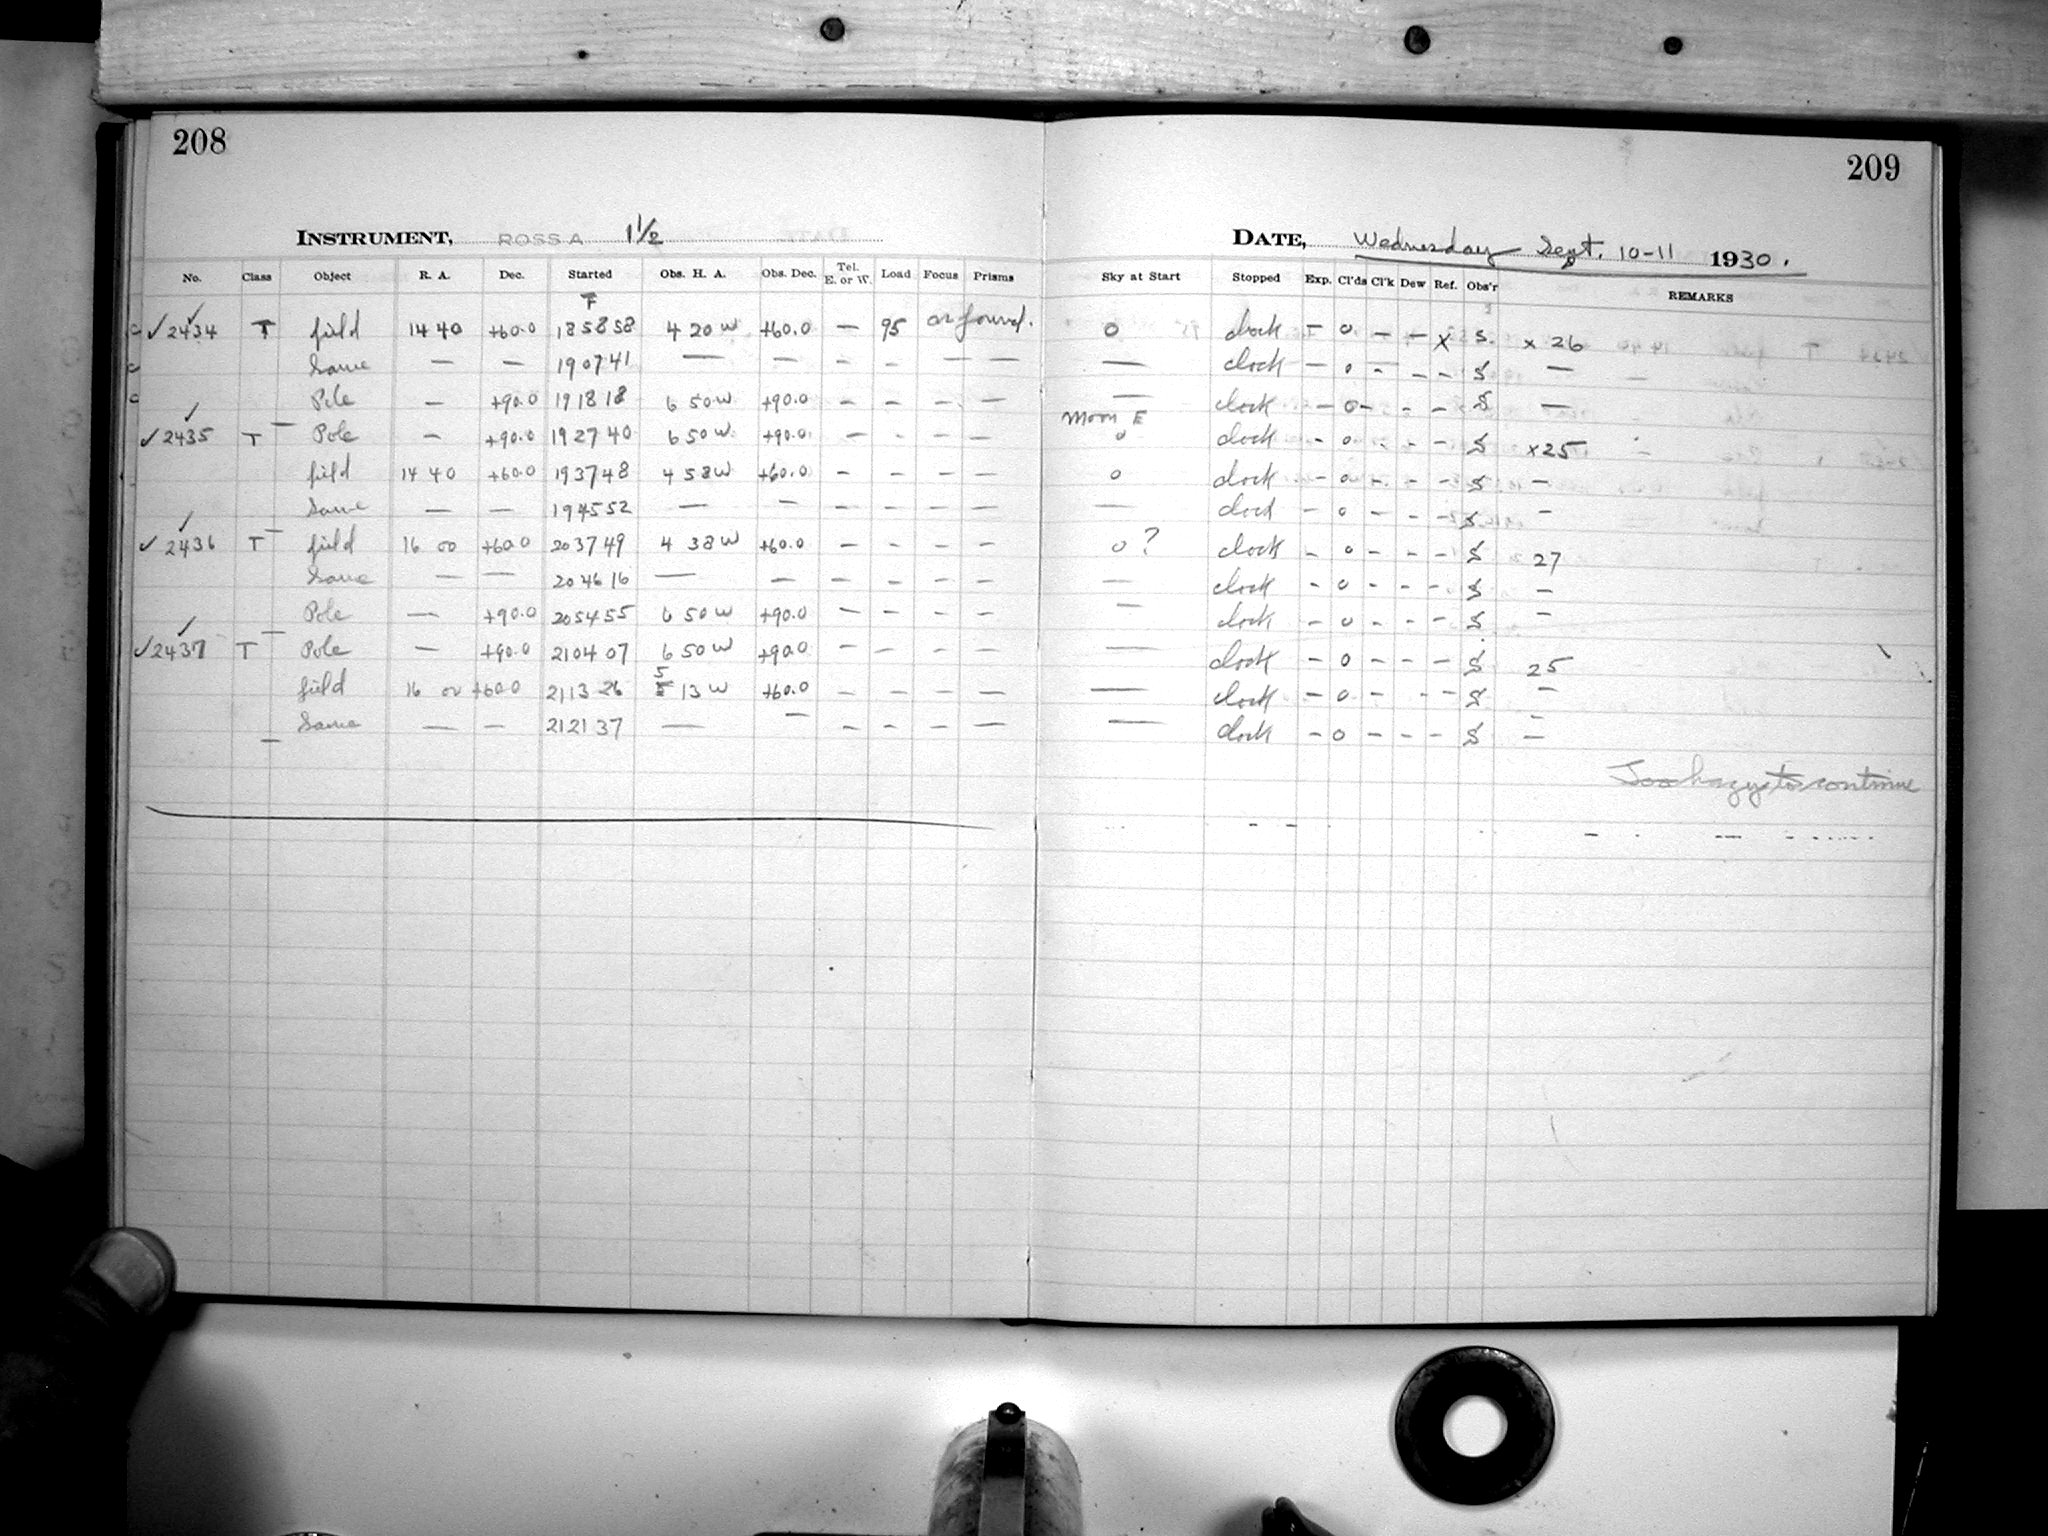 208
INSTRUMENT, ROSS A 1 1/2
No. Class Object R. A. Dec. Started Obs. H. A. Obs. Dec. Tel. E. or W. Load Focus Prisms
F
✓2434 T field 14 40 +60.0 18 58 58 4 20 W +60.0 — 95 as found.
Same — — 19 07 41 — — - - — —
Pole — +90.0 19 18 18 6 50 W +90.0 - - - —
✓2435 T Pole — +90.0 19 27 40 6 50 W +90.0 — - - —
field 14 40 +60.0 19 37 48 4 58 W +60.0 - - - -
Same — — 19 45 52 — — - - - -
✓2436 T field 16 00 +60.0 20 37 49 4 38 W +60.0 - - - -
Same — — 20 46 16 — - - - - -
Pole — +90.0 20 54 55 6 50 W +90.0 - - - -
✓2437 T Pole — +90.0 21 04 07 6 50 W +90.0 - - - -
field 16 00 +60.0 21 13 26 5 13 W +60.0 - - - -
Same — — 21 21 37 — — - - - —
209
DATE, Wednesday Sept. 10-11 1930.
Sky at Start Stopped Exp. Cl'ds Cl'k Dew Ref. Obs'r REMARKS
0 clock - 0 - - x S. x 26
— clock - 0 - - - S —
— clock - 0 - - - S —
Moon E
0 clock - 0 - - - S x25
0 clock - 0 - - - S -
— clock - 0 - - - S -
0 ? clock - 0 - - - S 27
— clock - 0 - - - S -
— clock - 0 - - - S -
— clock - 0 - - - S 25
— clock - 0 - - - S -
— clock - 0 - - - S —
Too hazy to continue